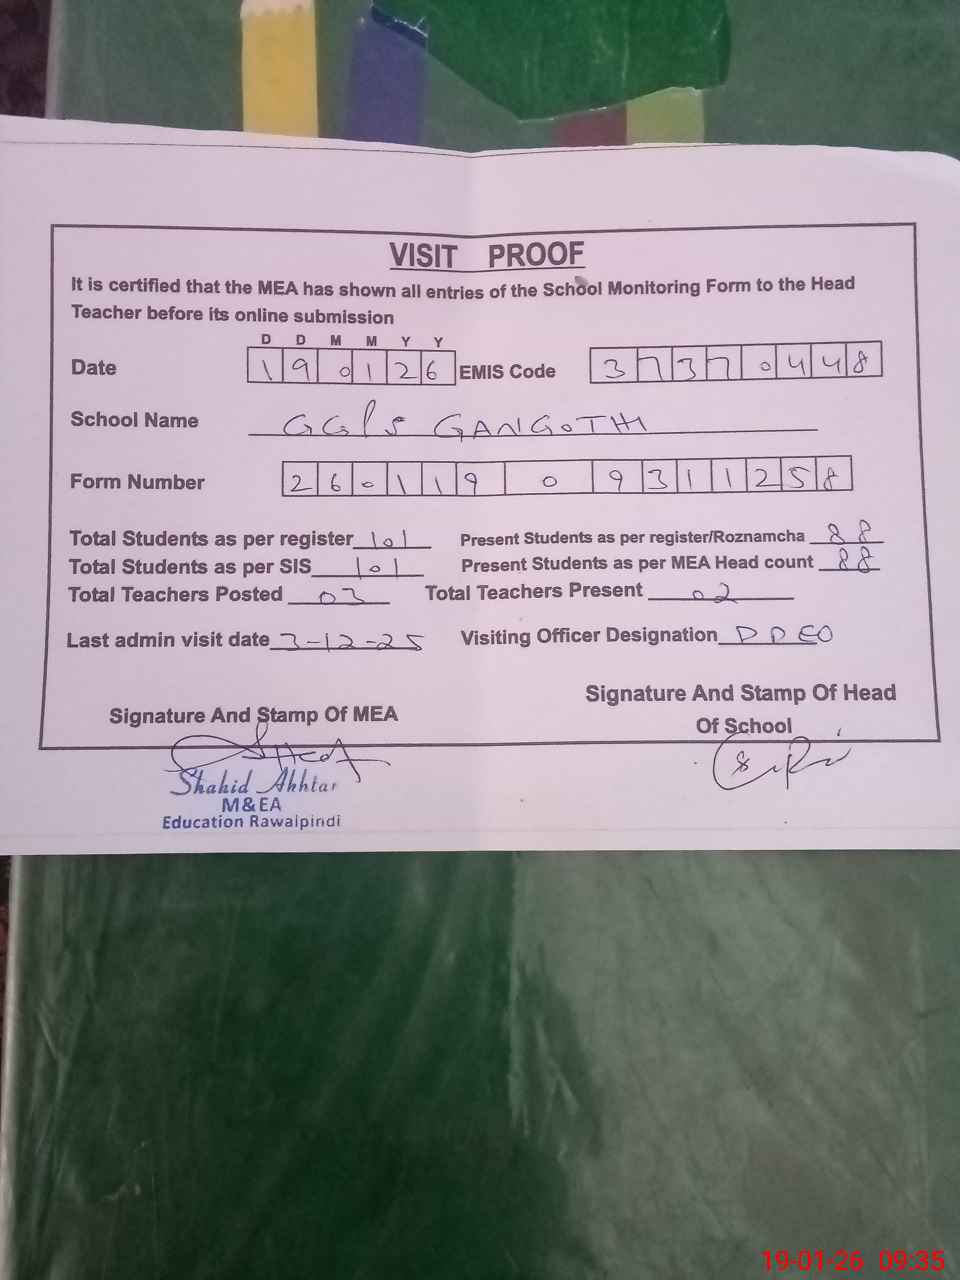 VISIT PROOF
It is certified that the MEA has shown all entries of the School Monitoring Form to the Head
Teacher before its online submission
D D M M Y Y
Date 1 9 0 1 2 6 EMIS Code 3 7 3 7 0 4 4 8
School Name GGPS GANGOTHI
Form Number 2 6 0 1 1 9 0 9 3 1 1 2 5 8
Total Students as per register 101 Present Students as per register/Roznamcha 88
Total Students as per SIS 101 Present Students as per MEA Head count 88
Total Teachers Posted 03 Total Teachers Present 02
Last admin visit date 3-12-25 Visiting Officer Designation DDEO
Signature And Stamp Of MEA Signature And Stamp Of Head
Of School
Shahid Akhtar
M&EA
Education Rawalpindi
19-01-26 09:35